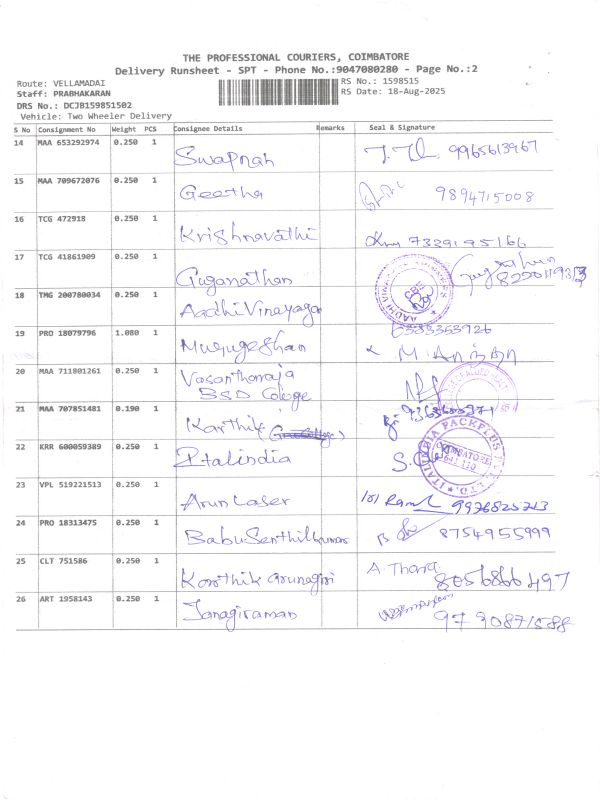 THE PROFESSIONAL COURIERS, COIMBATORE
Delivery Runsheet - SPT - Phone No.:9047080280 - Page No.:2
Route: VELLAMADAI
RS No.: 1598515
Staff: PRABHAKARAN
RS Date: 18-Aug-2025
DRS No.: DCJB159851502
Vehicle: Two Wheeler Delivery
S No Consignment No Weight PCS Consignee Details Remarks Seal & Signature
14 MAA 653292974 0.250 1 Swapnah 9965613967
15 MAA 709672076 0.250 1 Geetha 9894715008
16 TCG 472918 0.250 1 Krishnavathi
17 TCG 41861909 0.250 1 Guganathan
18 TMG 200780034 0.250 1 Aadhi Vinayaga
19 PRO 18079796 1.080 1 Murugeshan
20 MAA 711801261 0.250 1 Vasanthoraja
BSD College
21 MAA 707851481 0.190 1 Karthik
22 KRR 600059389 0.250 1 Italindia
23 VPL 519221513 0.250 1 Arun Laser
24 PRO 18313475 0.250 1 Babu Senthilkumar 8754955999
25 CLT 751586 0.250 1 Karthik arunagiri A Thara 8056866497
26 ART 1958143 0.250 1 Janagiraman